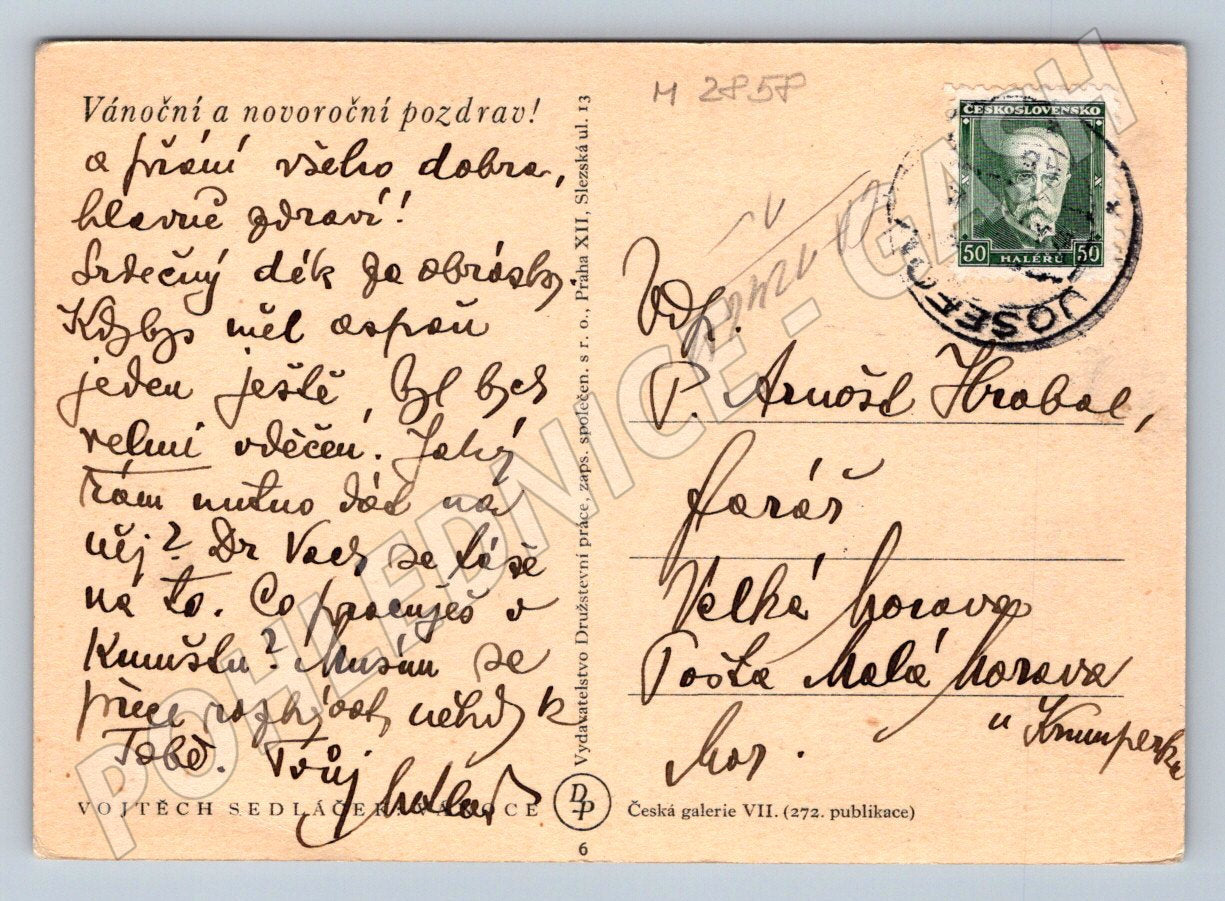 Vánoční a novoroční pozdrav!
a přání všeho dobra,
hlavně zdraví!
Srdečný dík za obrázky.
Kdybys měl aspoň
jeden ještě, byl bych
velmi vděčen. Jaký
rám nutno dát na
něj? Dr Vach se táže
na to. Co pracuješ v
Kunštu? Musím se
přece rozhýbat někdy k
Tobě. Tvůj
VOJTĚCH SEDLÁČEK: VÁNOCE
Vydavatelstvo Družstevní práce, zaps. společen. s r. o., Praha XII, Slezská ul. 13
DP
6
M 2858
ČESKOSLOVENSKO
50 HALÉŘŮ 50
JOSEFO
Vdp.
P. Arnošt Hrabal,
farář
Velká Morava
Pošta Malá Morava
u Krumperka
Mor.
Česká galerie VII. (272. publikace)
POHLEDNICE-GACH